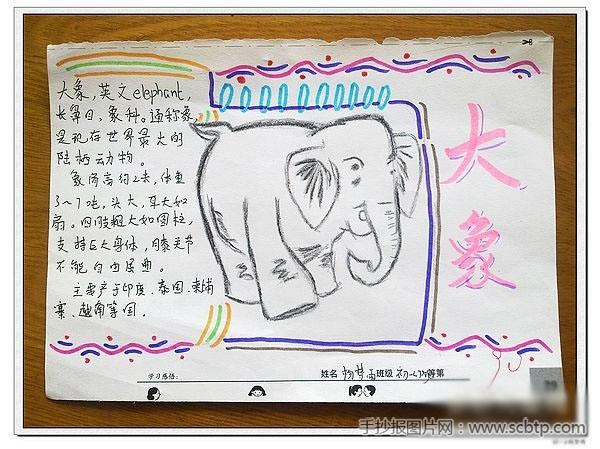 大象,英文elephant,
长鼻目,象科。通称象,
是现在世界最大的
陆栖动物。
象肩高约2米,体重
3~7吨,头大,耳大如
扇。四肢粗大如圆柱,
支持巨大身体,膝关节
不能自由屈曲。
主要产于印度、泰国、柬埔
寨、越南等国。
大象
学习感悟:
姓名
班级
等第
手抄报图片网:www.scbtp.com